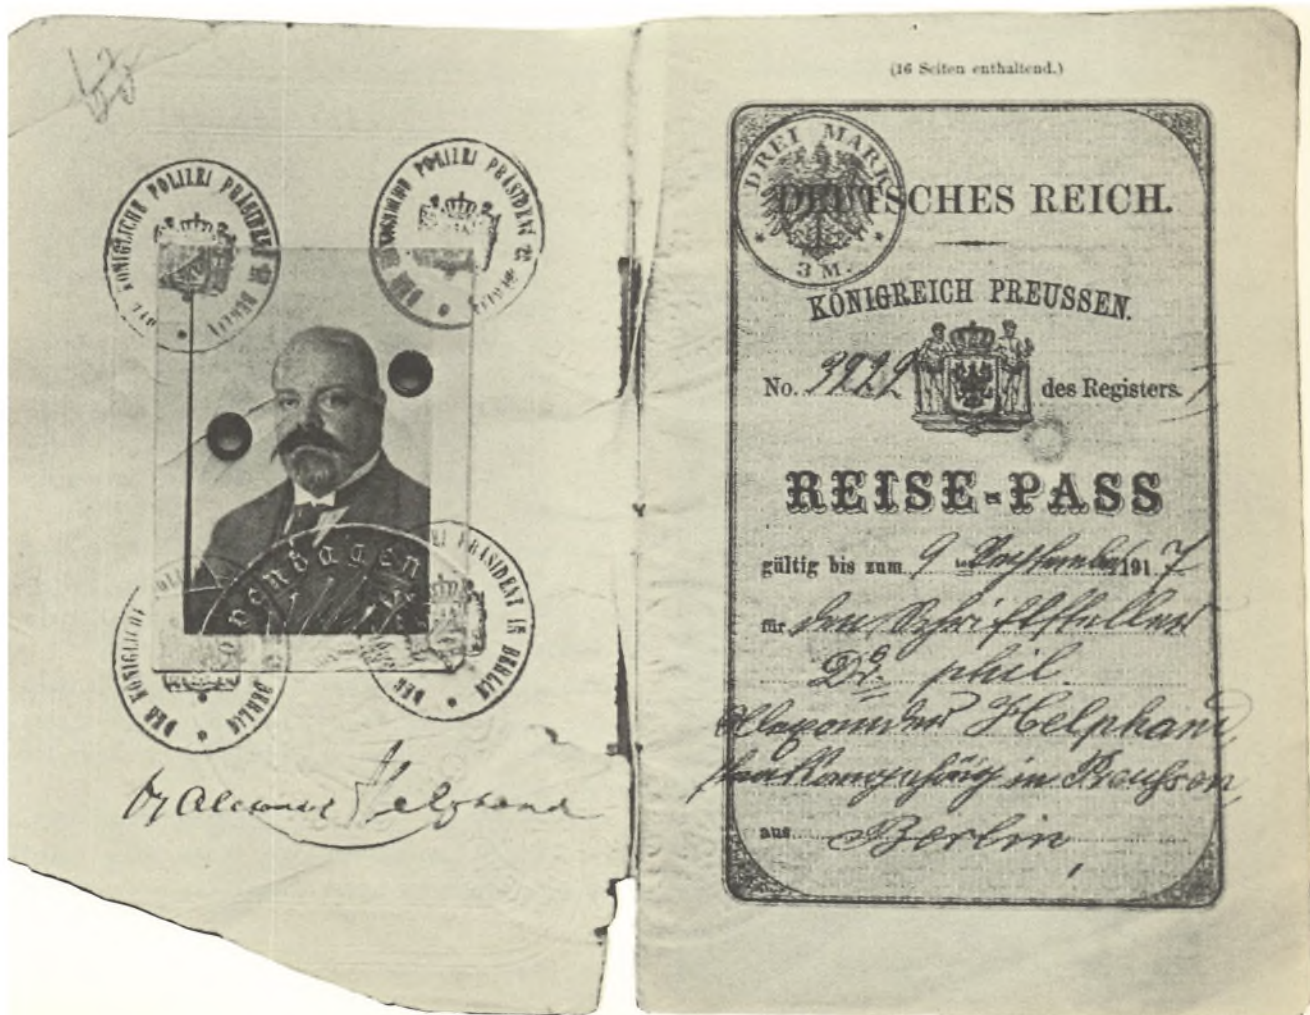 DER KÖNIGLICHE POLIZEI PRÄSIDENT IN BERLIN
DER KÖNIGLICHE POLIZEI PRÄSIDENT IN BERLIN
DER KÖNIGLICHE POLIZEI PRÄSIDENT IN BERLIN
PRÄSIDENT IN BERLIN
Dr Alexander Helphand
(16 Seiten enthaltend.)
DREI MARK
3 M.
DEUTSCHES REICH.
KÖNIGREICH PREUSSEN.
No. des Registers.
REISE-PASS
gültig bis zum 9 ten September 1917
für den Schriftsteller
Dr. phil.
Alexander Helphand,
staatsangehörig in Preußen,
aus Berlin,